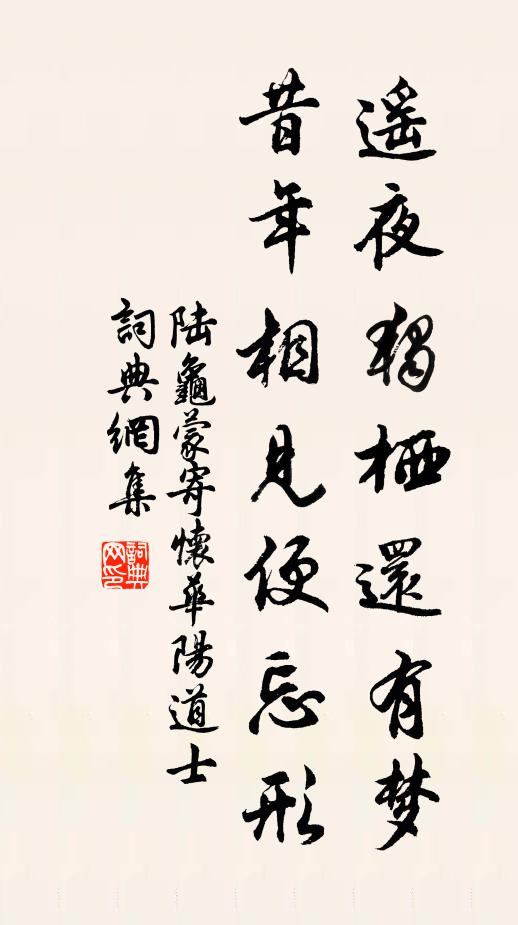 遥夜獨栖還有梦
昔年相見便忘形
陆龜蒙寄懷華陽道士
詞典網集
詞典网印